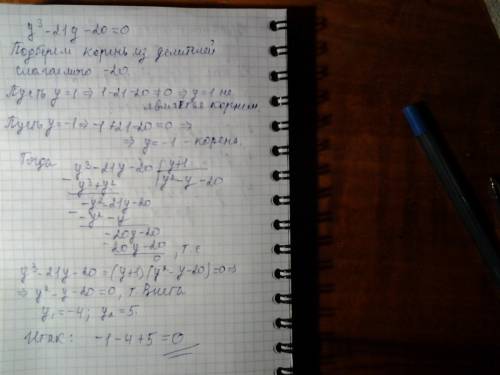 y³-21y-20=0
Подберем корень из делителей
слагаемого -20.
Пусть y=1 ⇒ 1-21-20≠0 ⇒ y=1 не
является корнем.
Пусть y=-1 ⇒ -1+21-20=0 ⇒
⇒ y=-1 - корень.
Тогда y³-21y-20 | y+1
- y³+y² | y²-y-20
-y²-21y-20
- -y²-y
-20y-20
- -20y-20
0 , т.е
y³-21y-20=(y+1)(y²-y-20)=0 ⇒
⇒ y²-y-20=0, т. Виета
y₁=-4; y₂=5.
Итак: -1-4+5=0